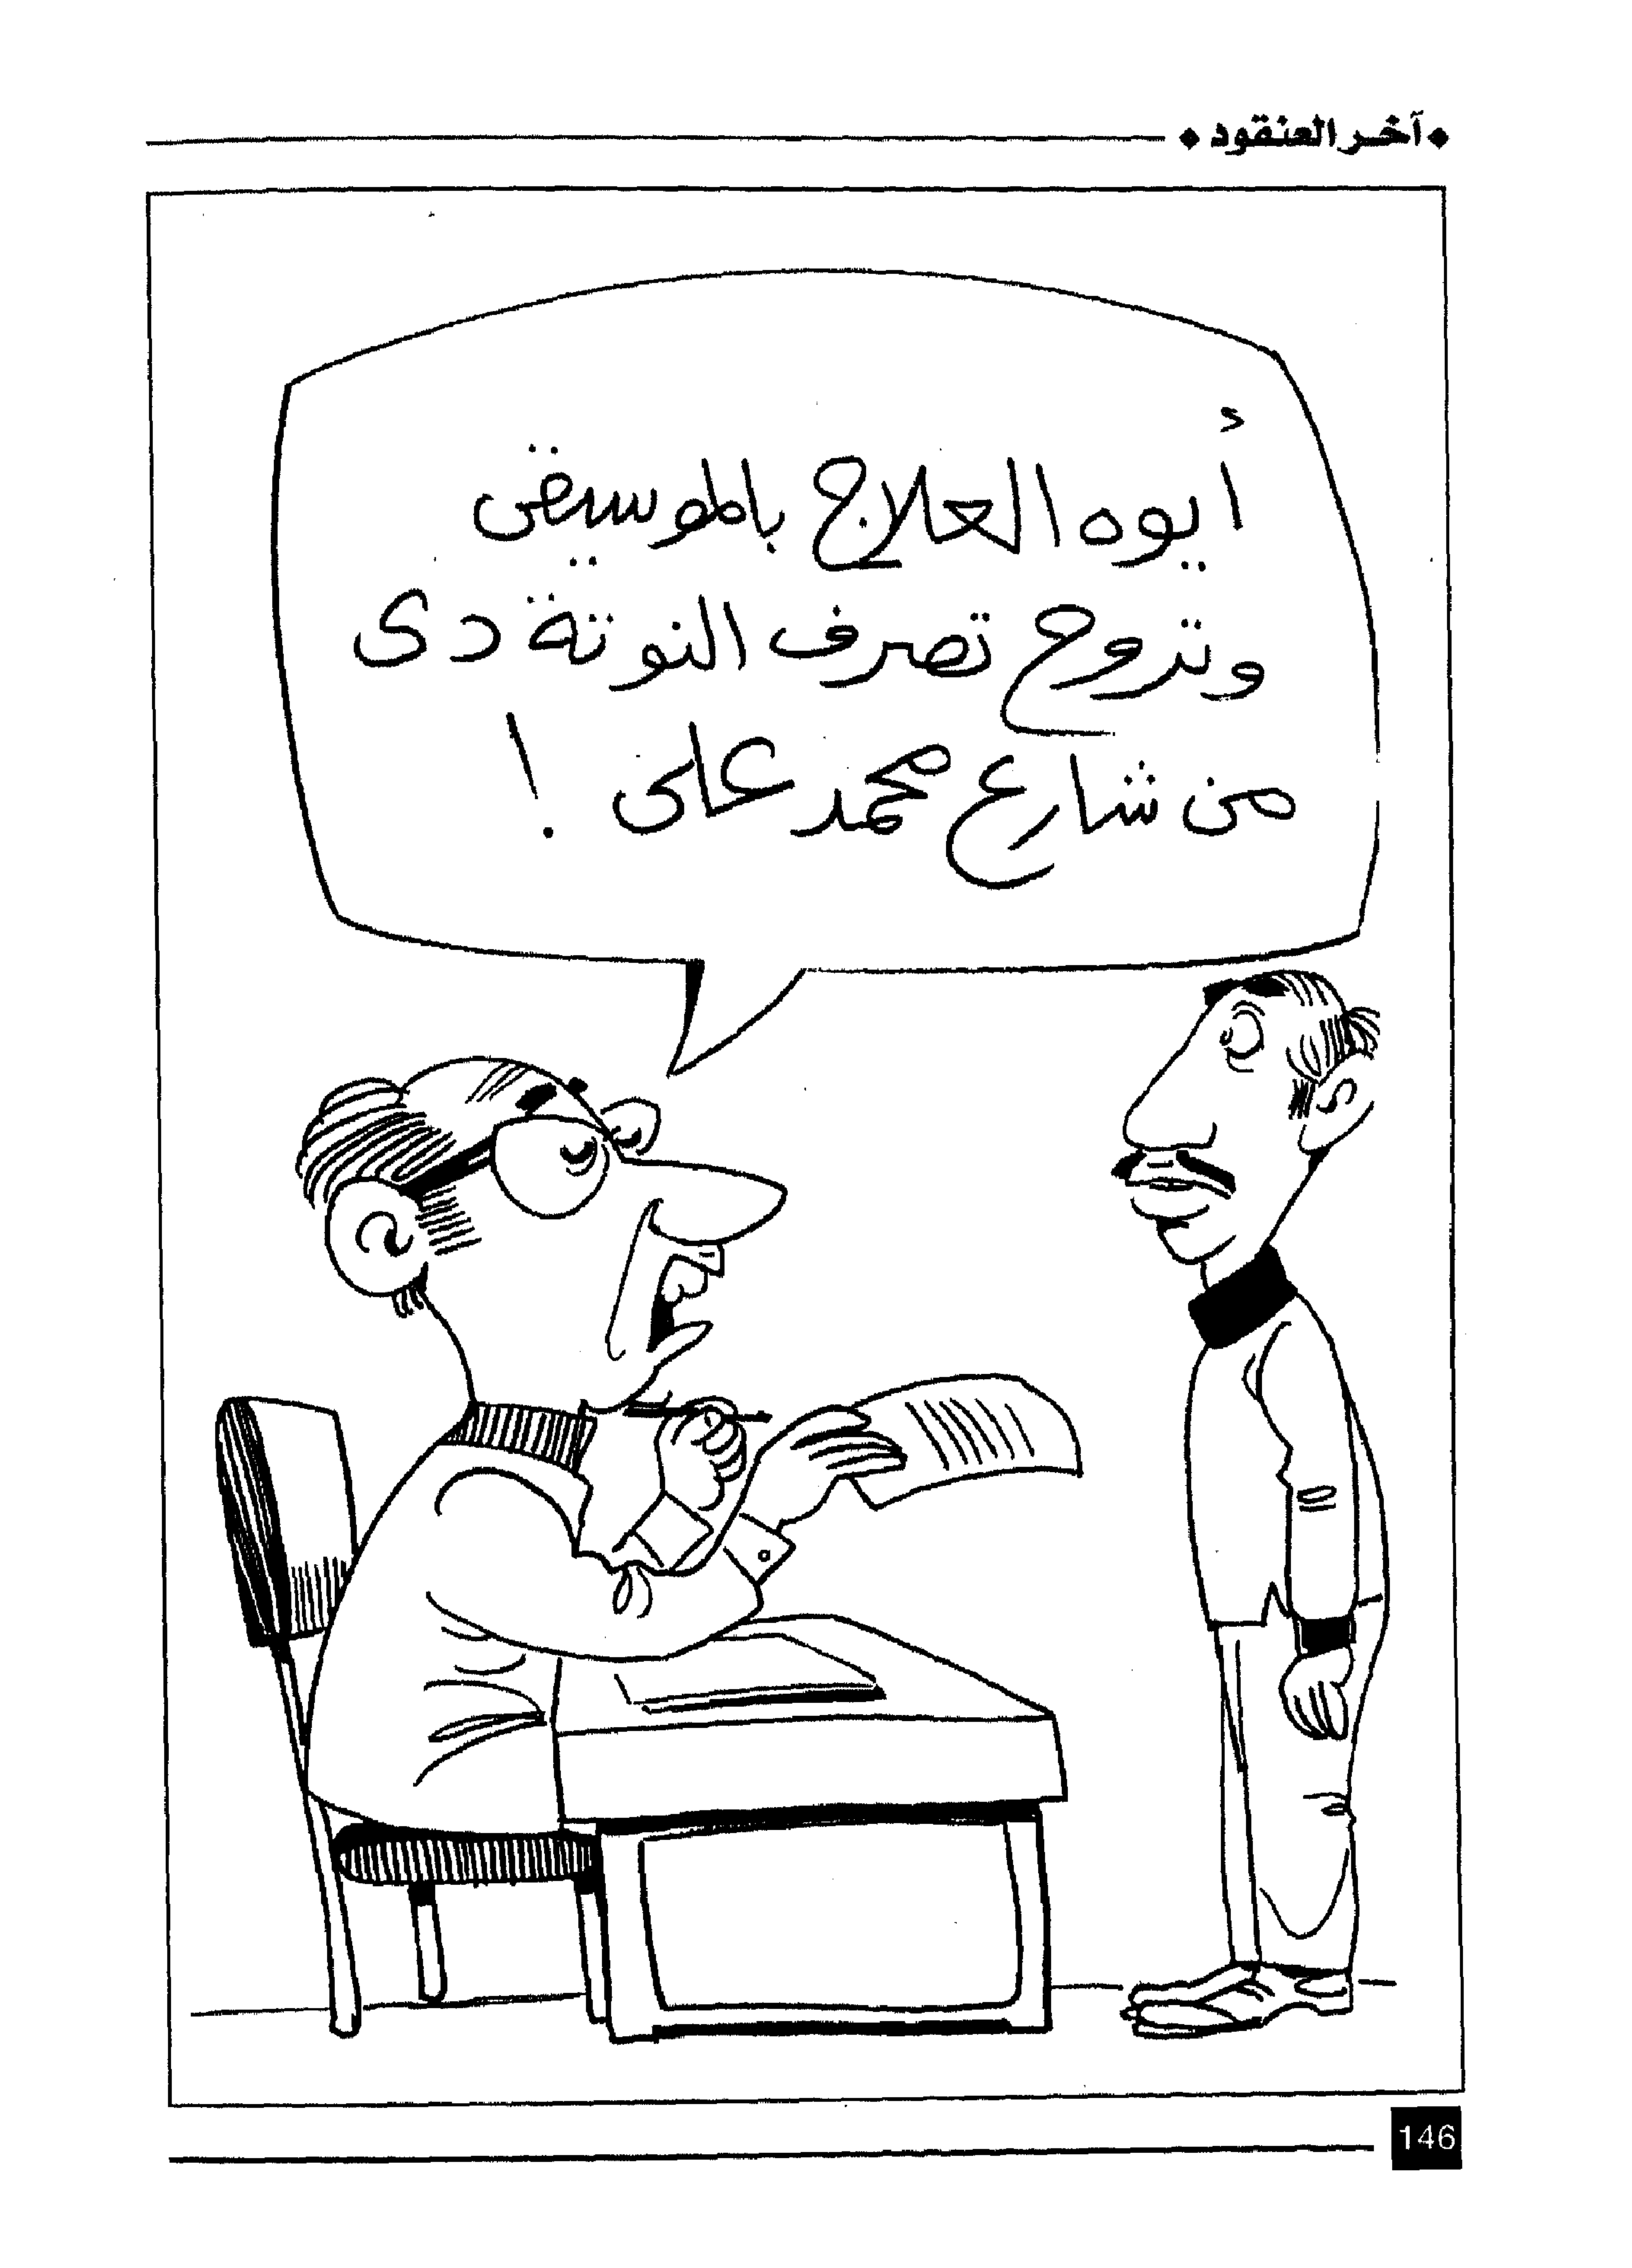 آخر العنقود
أيوه العلاج بالموسيقى
وتروح تصرف النوتة دى
من شارع محمد على !
146